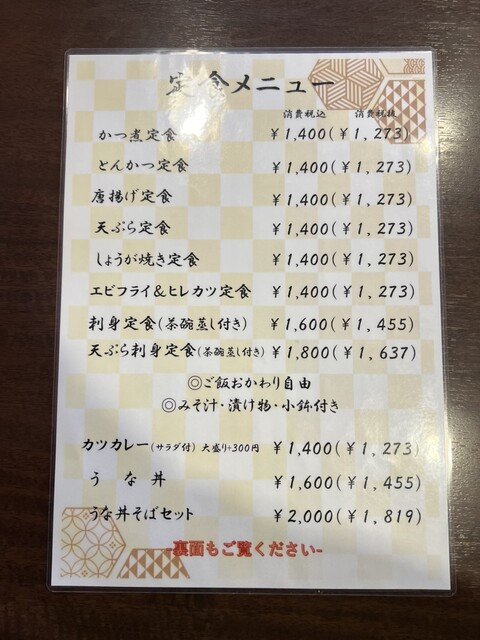 定食メニュー
消費税込 消費税抜
かつ煮定食 ¥1,400(¥1,273)
とんかつ定食 ¥1,400(¥1,273)
唐揚げ定食 ¥1,400(¥1,273)
天ぷら定食 ¥1,400(¥1,273)
しょうが焼き定食 ¥1,400(¥1,273)
エビフライ&ヒレカツ定食 ¥1,400(¥1,273)
刺身定食(茶碗蒸し付き) ¥1,600(¥1,455)
天ぷら刺身定食(茶碗蒸し付き) ¥1,800(¥1,637)
◎ご飯おかわり自由
◎みそ汁・漬け物・小鉢付き
カツカレー(サラダ付) 大盛り+300円 ¥1,400(¥1,273)
うな丼 ¥1,600(¥1,455)
うな丼そばセット ¥2,000(¥1,819)
-裏面もご覧ください-